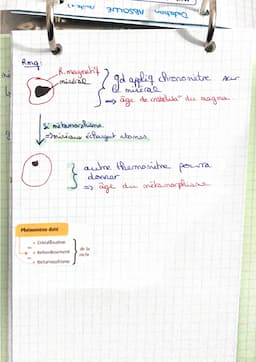 Datation ABSOLUE
Rmq:
R. magmatiq
minéral
qd appliq chronomètre sur
le minéral
=> âge de cristallisat° du magma.
si métamorphisme
=> minéraux échangent atomes
autre thermomètre pourra
donner
=> âge du métamorphisme
Phénomène daté
→ Cristallisation
→ Refroidissement
→ Métamorphisme
de la
roche